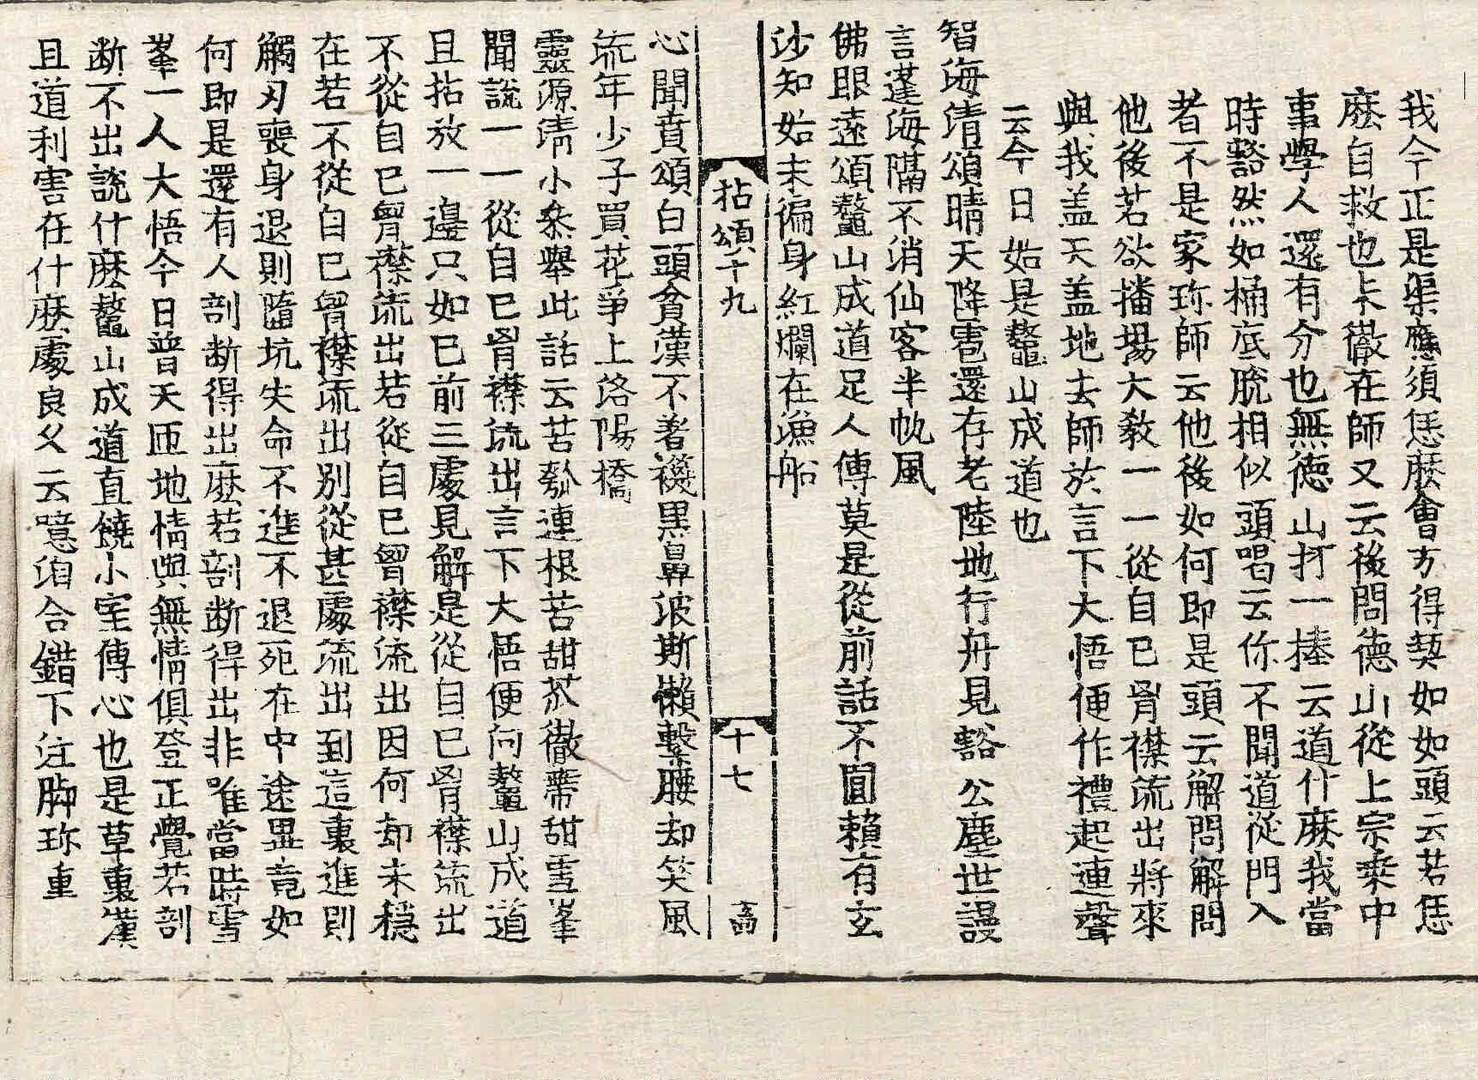 我今正是渠應須恁麽會方得契如如頭云若恁
麽自救也未徹在師又云後問德山從上宗乘中
事學人還有分也無德山打一捧云道什麽我當
時豁然如桶底脫相似頭唱云你不聞道從門入
者不是家珎師云他後如何即是頭云解問解問
他後若欲播揚大教一一從自己胷襟流出將來
與我盖天盖地去師於言下大悟便作禮起連聲
云今日始是鼇山成道也
智海清頌晴天降雹還存老陸地行舟見豁公塵世謾
言蓬海隔不消仙客半帆風
佛眼遠頌鼇山成道足人傳莫是從前話不圓賴有玄
沙知始末徧身紅爛在漁船
拈頌十九
十七
心聞賁頌白頭貧漢不著襪黒鼻波斯懶繫腰却笑風
流年少子買花爭上洛陽橋
靈源清小叅舉此話云苦瓠連根苦甜苽徹蔕甜雪峯
聞說一一從自己胷襟流出言下大悟便向鼇山成道
且拈放一邊只如已前三處見解是從自己胷襟流出
不從自己胷襟流出若從自己胷襟流出因何却未穩
在若不從自己胷襟流出別從甚處流出到這裏進則
觸刃喪身退則墮坑失命不進不退死在中途畢竟如
何即是還有人剖断得出麽若剖断得出非唯當時雪
峯一人大悟今日普天匝地情與無情俱登正覺若剖
断不出說什麽鼇山成道直饒小室傳心也是草裏漢
且道利害在什麽處良久云噫洎合錯下注脚珎重